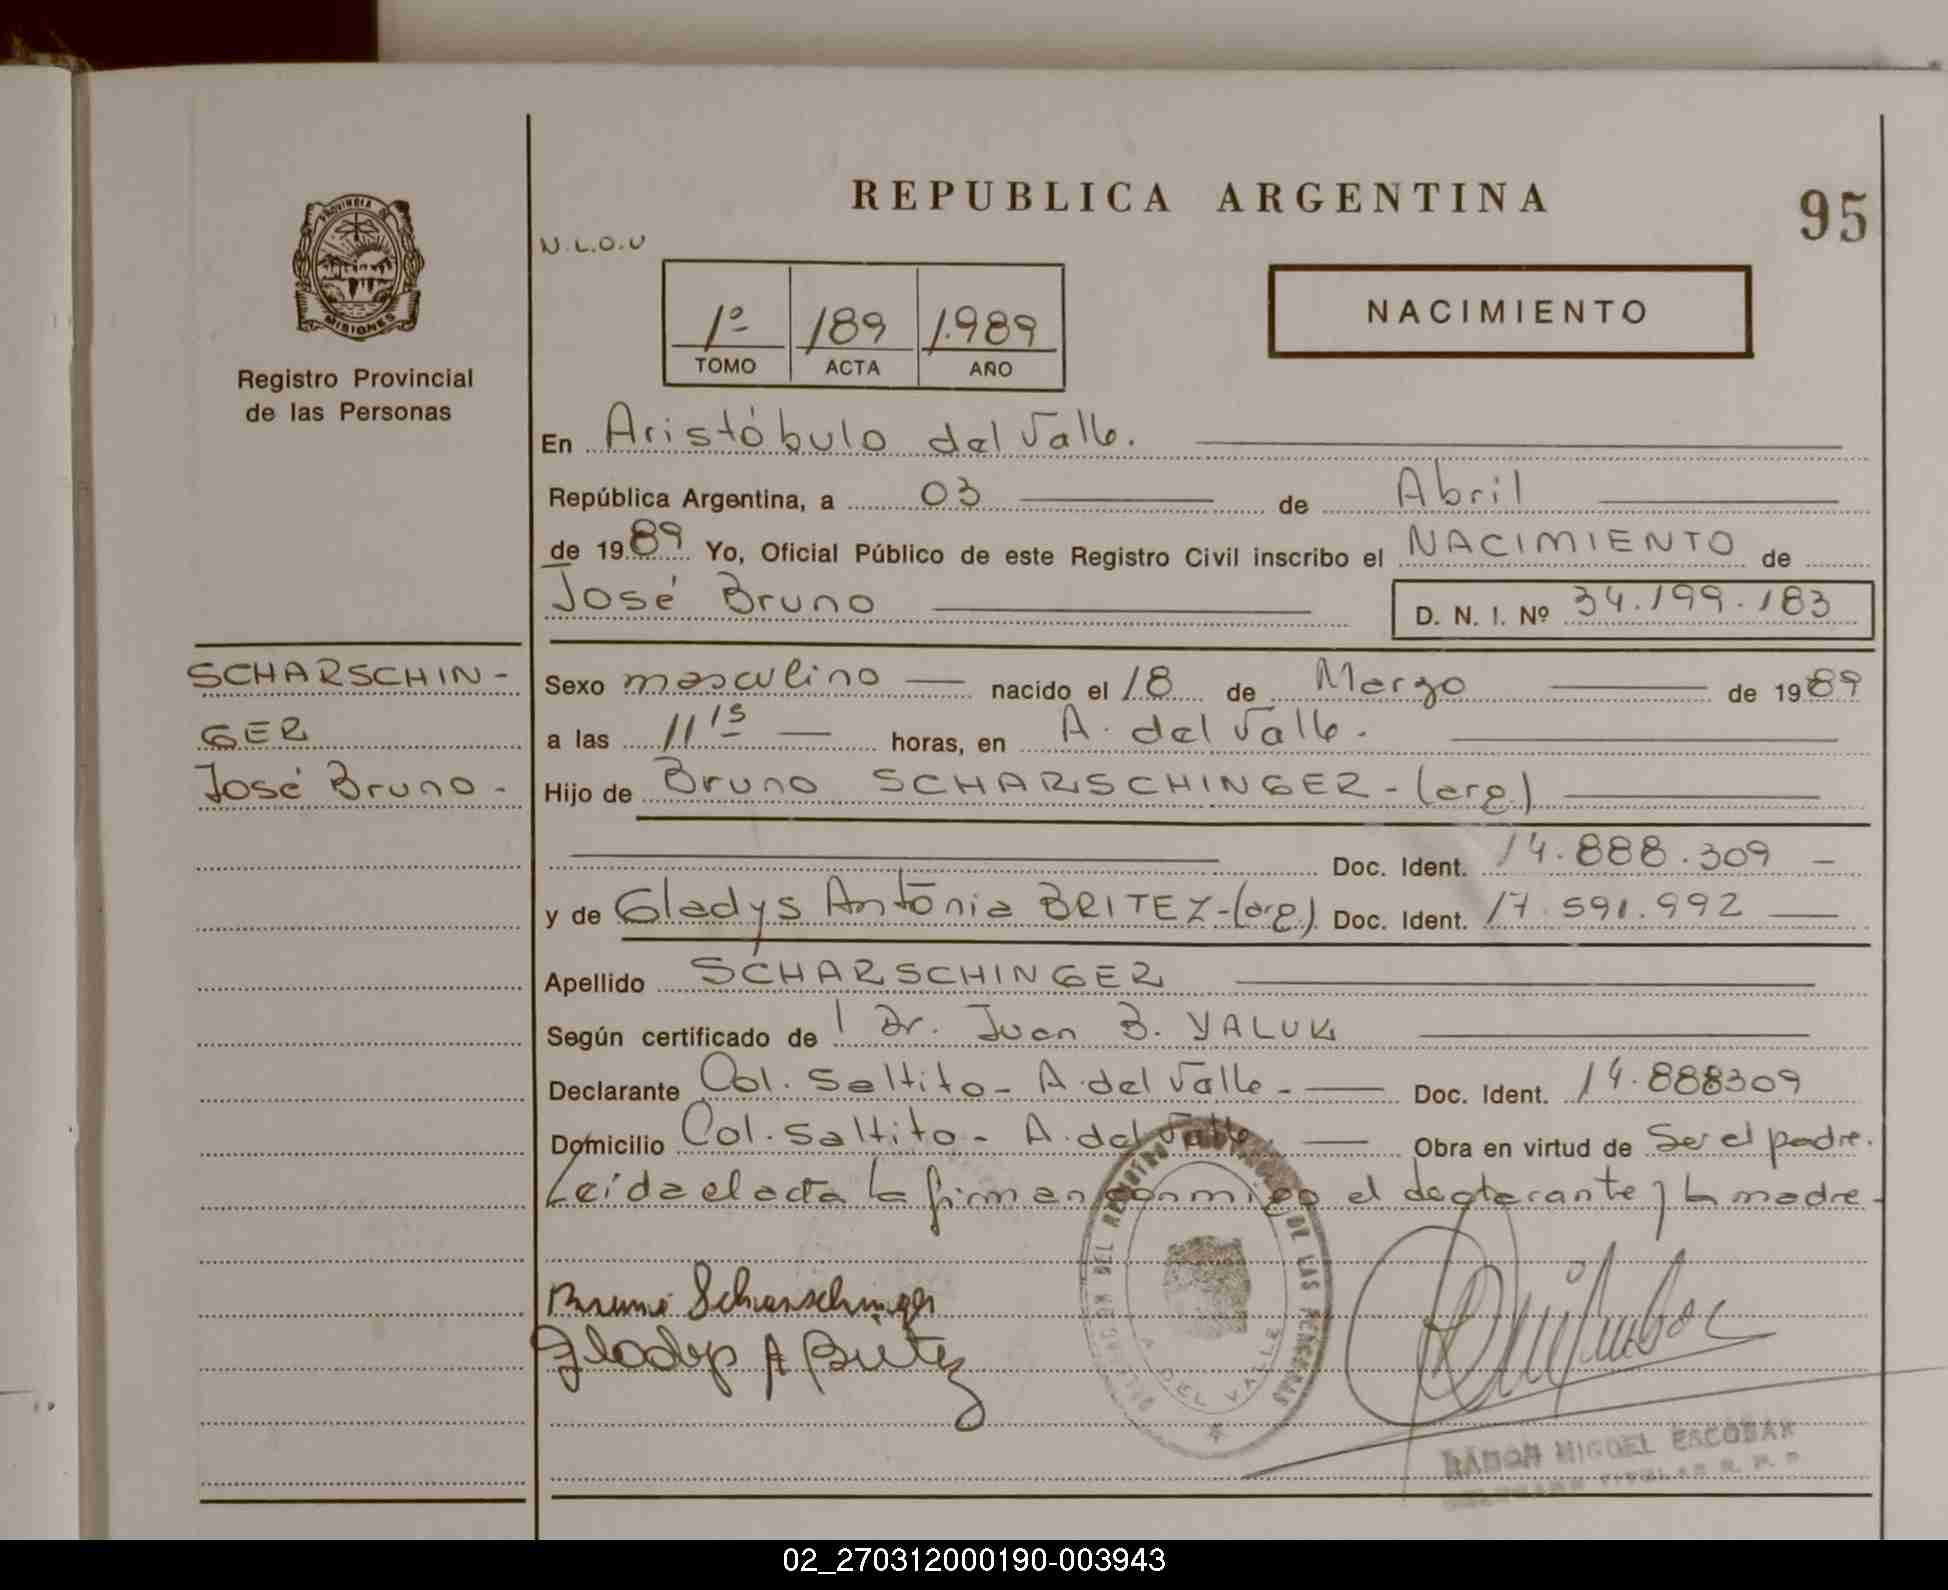 REPUBLICA ARGENTINA
95
PROVINCIA DE
MISIONES
Registro Provincial
de las Personas
N.L.O.U
1º 189 1.989
TOMO ACTA AÑO
NACIMIENTO
En Aristóbulo del Valle.
República Argentina, a 03 de Abril
de 1989 Yo, Oficial Público de este Registro Civil inscribo el NACIMIENTO de
José Bruno D. N. I. Nº 34.199.183
SCHARSCHIN-
GER
José Bruno -
Sexo masculino nacido el 18 de Marzo de 1989
a las 11 15 horas, en A. del Valle.
Hijo de Bruno SCHARSCHINGER - (arg.)
Doc. Ident. 14.888.309 -
y de Gladys Antonia BRITEZ - (arg.) Doc. Ident. 17.591.992
Apellido SCHARSCHINGER
Según certificado de Dr. Juan B. YALUK
Declarante Col. Saltito - A. del Valle - Doc. Ident. 14.888309
Domicilio Col. Saltito - A. del Valle Obra en virtud de Ser el padre.
Leída el acta la firman conmigo el declarante y la madre -
Bruno Scharschinger
Gladys A Britez
DEL REGISTRO PROVINCIAL DE LAS PERSONAS
A. DEL VALLE
RAMON MIGUEL ESCOBAR
TITULAR R. P. P.
02_270312000190-003943